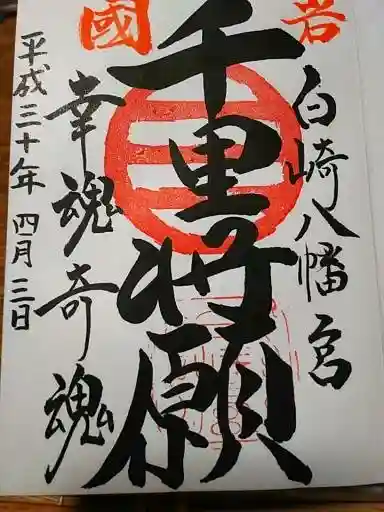 岩國
白崎八幡宮
千里将願
幸魂奇魂
平成三十年四月三日